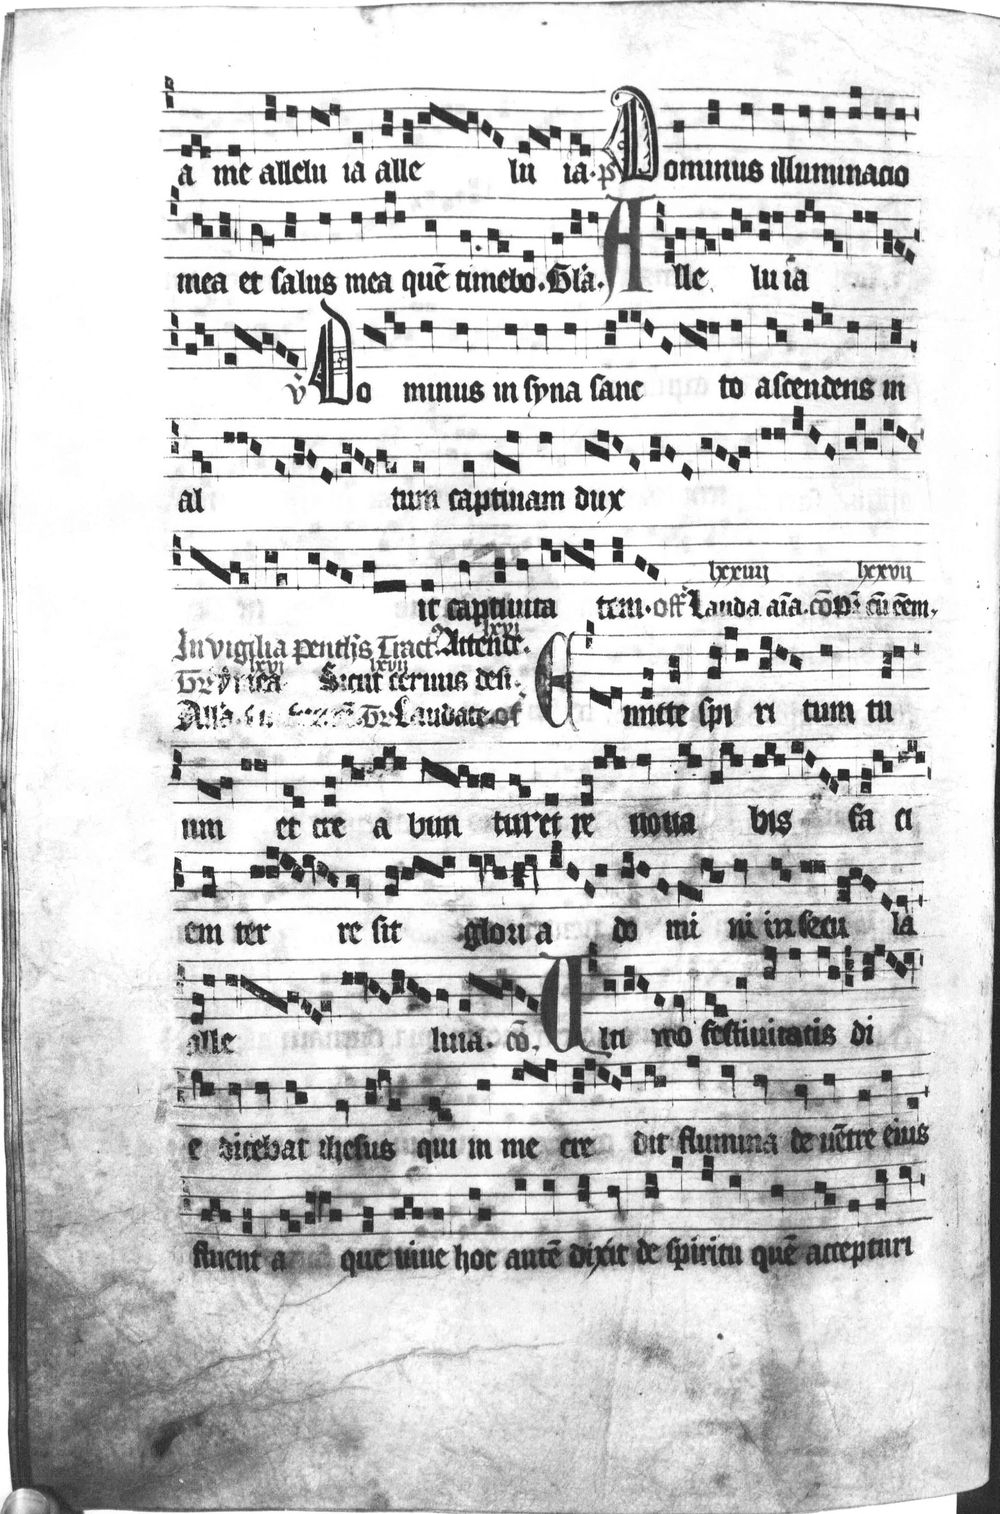 a me allelu ia alle lu ia. p̄ Dominus illuminacio
mea et salus mea quē timebo. Gl̄a. Alle lu ia
v̄ Do minus in syna sanc to ascendens in
al tum captiuam dux
it captiuita tem. off̄ Lauda aīa. cō P̄ cū eēm.
lxxiiij lxxvij
In vigilia penth̄s Tract. Attende.
lxvi
lxvi lxvii
Sicut ceruus desi.
All̄a. Gr̄ Laudate. of
E mitte spi ri tum tu
um et cre a bun tur et re noua bis fa ci
em ter re sit glori a do mi ni in secu la
alle luia. cō. U lti mo festiuitatis di
e dicebat ihesus qui in me cre dit flumina de uētre eius
fluent a que uiue hoc autē dixit de spiritu quē accepturi